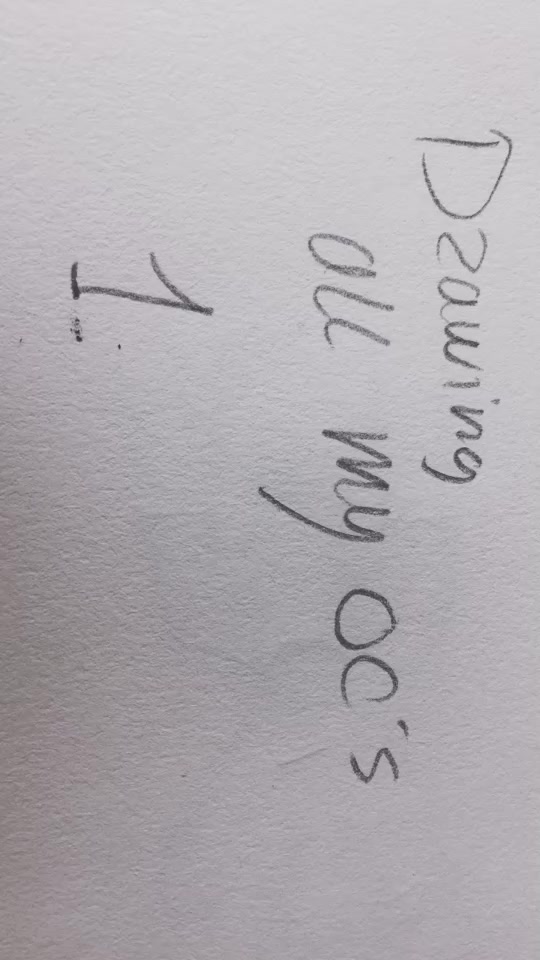 Drawing
all my OC's
1.